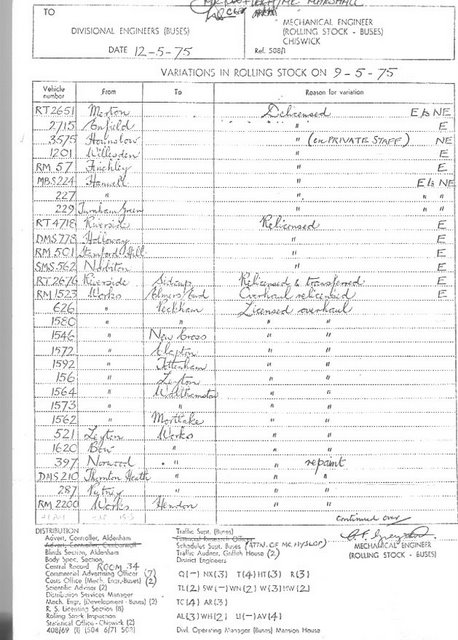 TO
DIVISIONAL ENGINEERS (BUSES)
DATE 12-5-75
MECHANICAL ENGINEER
(ROLLING STOCK - BUSES)
CHISWICK
Ref. 508/1
VARIATIONS IN ROLLING STOCK ON 9-5-75
Vehicle number From To Reason for variation
RT2651 Merton Delicensed E to NE
2715 Enfield " " E
3575 Hounslow " (on PRIVATE STAFF) NE
1201 Willesden " E
RM 57 Finchley " E
MBS224 Hanwell " E to NE
227 " " " "
229 Turnham Green " " "
RT4718 Riverside Relicensed E
DMS778 Holloway " E
RM 501 Stamford Hill " E
SMS562 Norbiton " E
RT2676 Riverside Sidcup Relicensed & transferred E
RM1523 Works Elmers End Overhaul relicensed E
626 " Peckham Licensed overhaul
1580 " " " "
1546 " New Cross " "
1572 " Clapton " "
1592 " Tottenham " "
156 " Leyton " "
1564 " Walthamstow " "
1573 " " " "
1562 " Mortlake " "
521 Leyton Works " "
1620 Bow " " "
397 Norwood " " repaint
DMS210 Thornton Heath " " "
287 Putney " " "
RM 2200 Works Hendon " "
continued over
DISTRIBUTION
Advert. Controller, Aldenham
Blinds Section, Aldenham
Body Spec. Section,
Central Record ROOM 34
Commercial Advertising Officer (7)
Costs Office (Mech. Engr. Buses) (2)
Scientific Adviser (2)
Distribution Services Manager
Mech. Engr. (Development Buses) (2)
R. S. Licensing Section (8)
Rolling Stock Inspection
Statistical Office - Chiswick (2)
Traffic Supt. (Buses)
Schedules Supt. Buses (ATTN. OF MR HYSLOP)
Traffic Auditor, Griffith House (2)
District Engineers
Q(-) NX(3) T(4) HT(3) R(3)
TL(2) SW(-) WN(2) W(3) HW(2)
TC(4) AR(3)
AL(3) WH(2) U(-) AV(4)
Divl. Operating Manager (Buses) Mansion House
MECHANICAL ENGINEER
(ROLLING STOCK - BUSES)